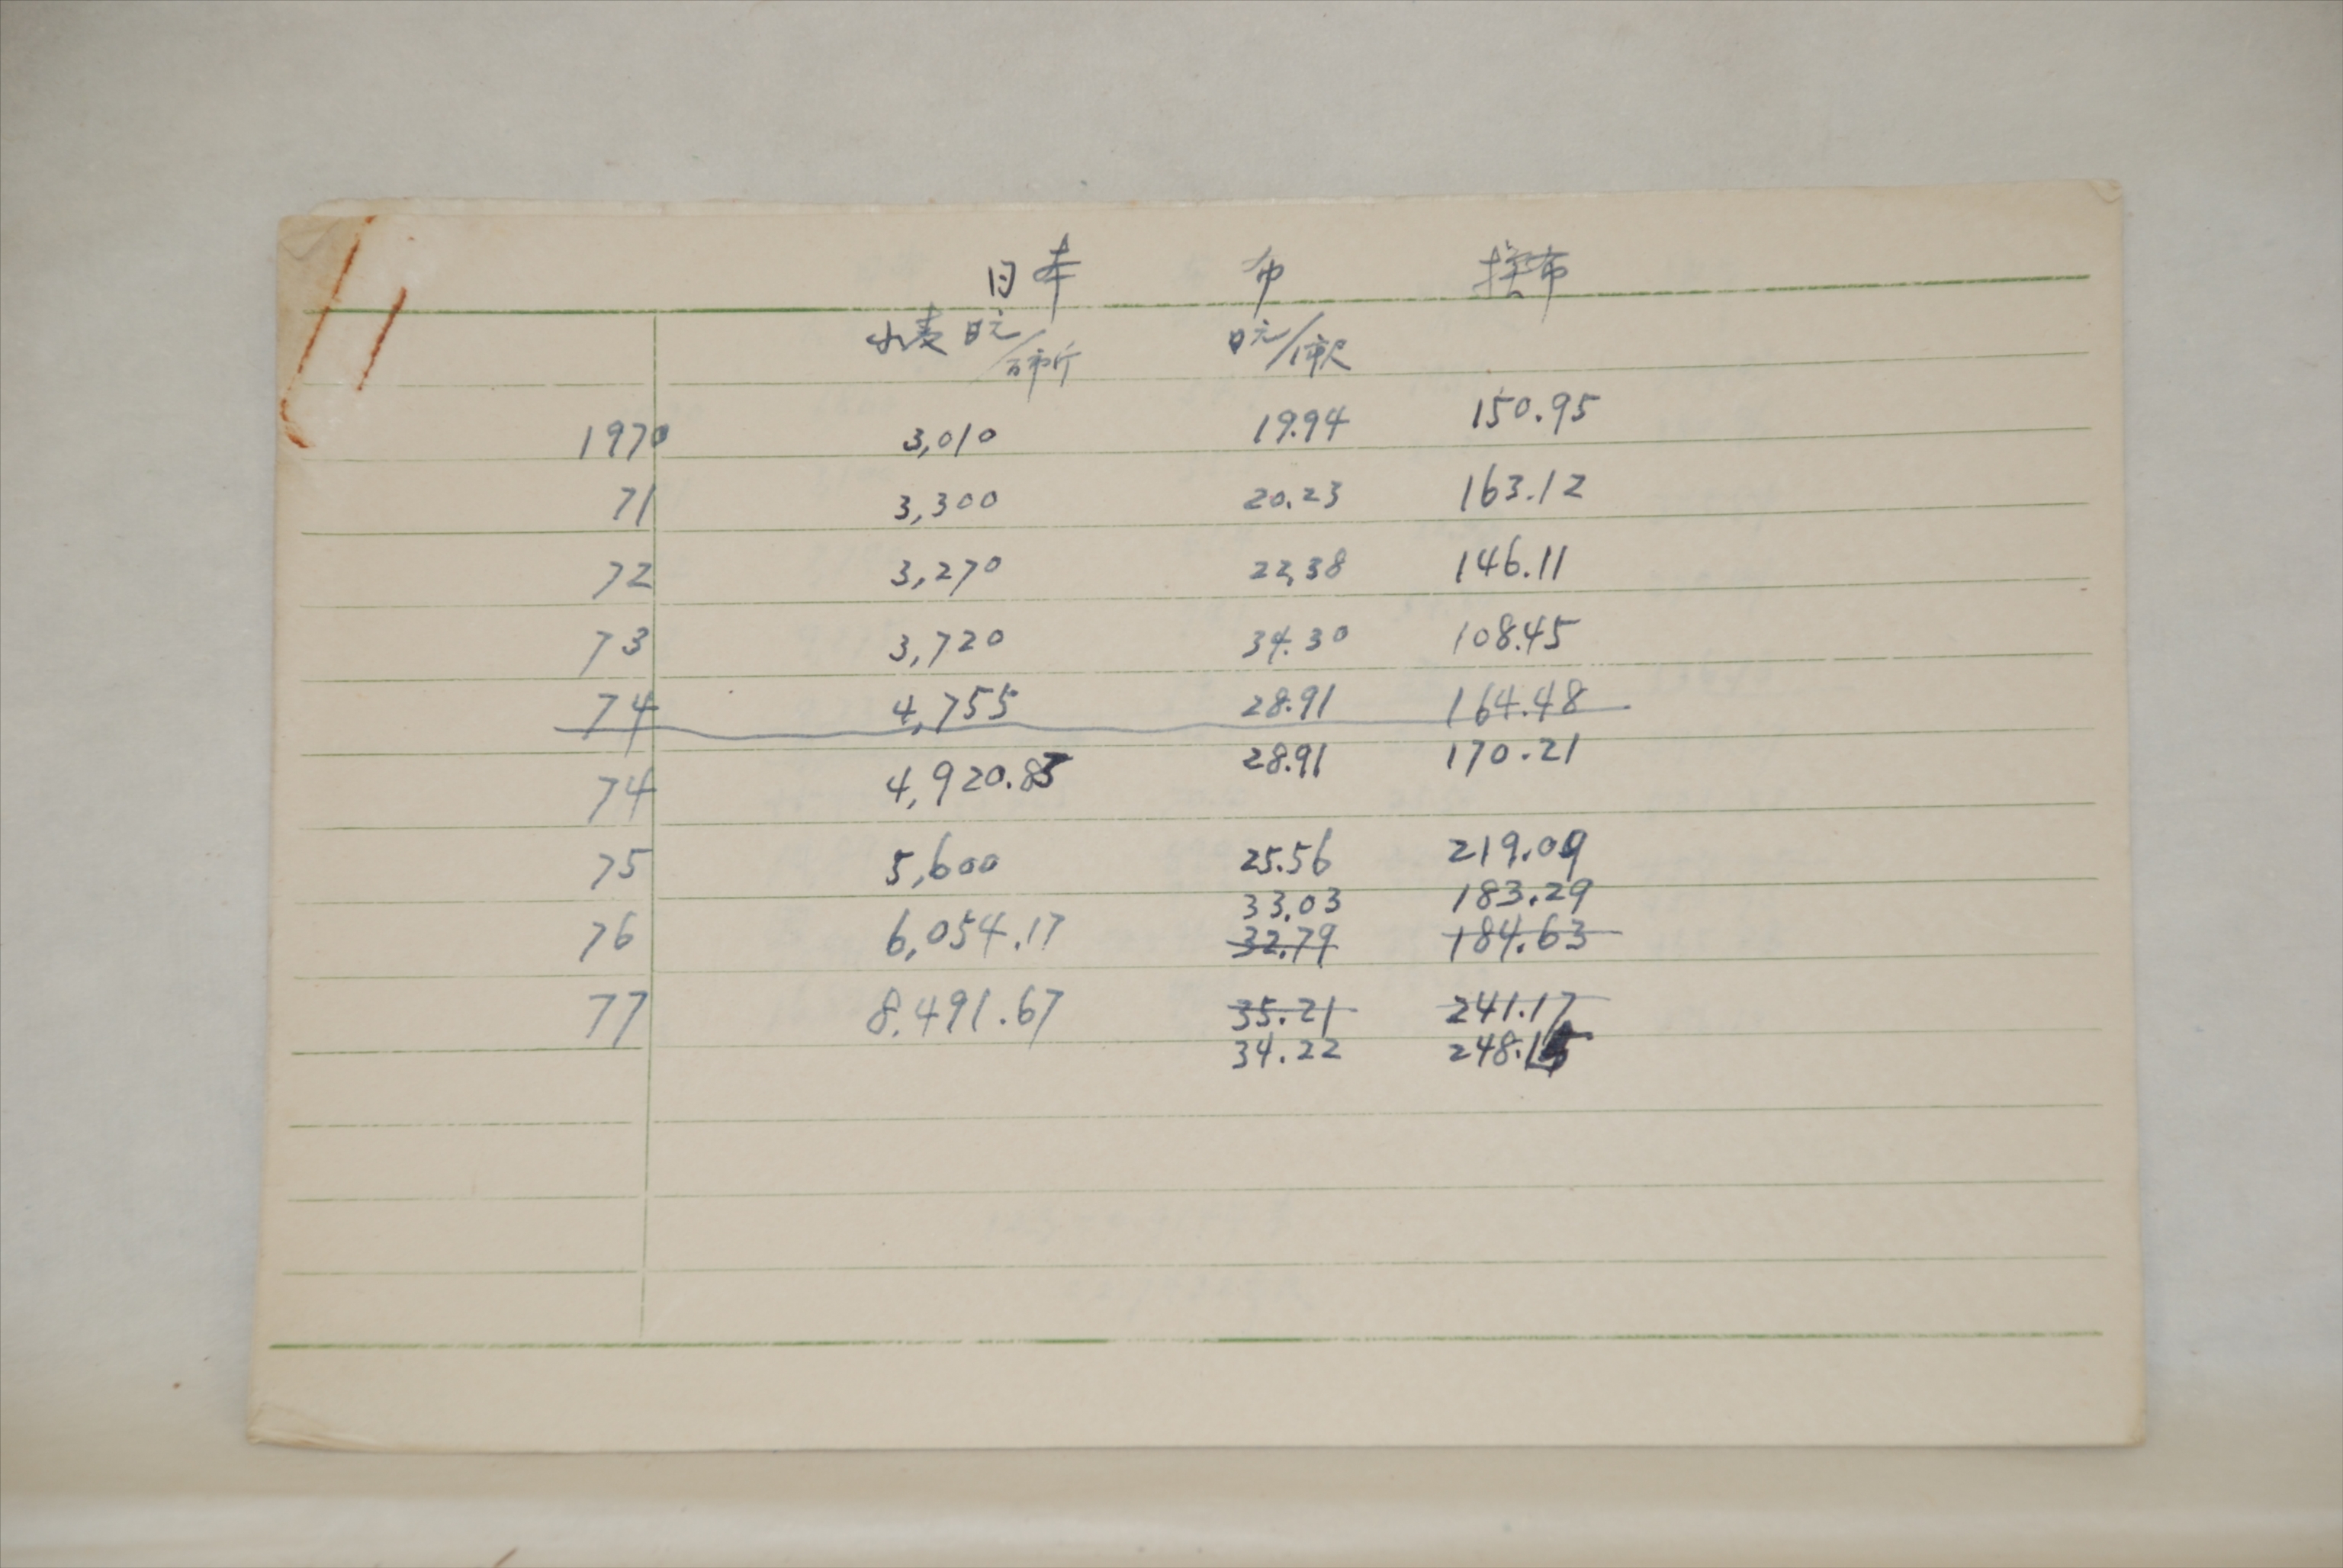 日本 布 換布
小麦 日元/百市斤 日元/1市尺
1970 3,010 19.94 150.95
71 3,300 20.23 163.12
72 3,270 22.38 146.11
73 3,720 34.30 108.45
74 4,755 28.91 164.48
74 4,920.83 28.91 170.21
75 5,600 25.56 219.09
33.03 183.29
76 6,054.17 32.79 184.63
77 8,491.67 35.21 241.17
34.22 248.15